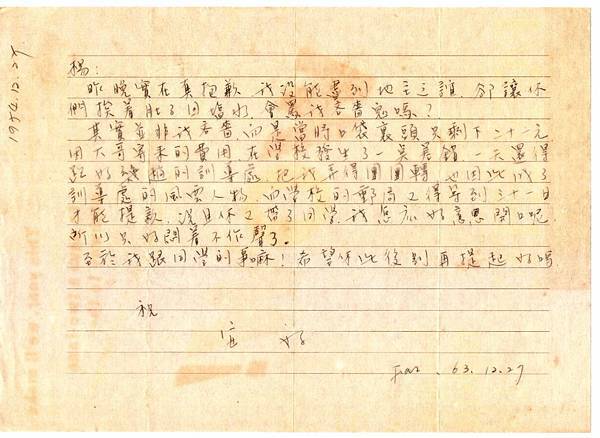 1974.12.27
楊:
昨晚實在真抱歉 我沒能盡到地主之誼 卻讓你
們挨著肚子回淡水 會罵我吝嗇鬼嗎?
其實並非我吝嗇 而是當時口袋裏頭只剩下二十一元
因大哥寄來的費用在學校發生了一 一天還得
的訓導處 把我弄得團團轉 也因此成了
訓導處的風雲人物 而學校的郵局又得等到三十一日
才能提款 況且你又帶了同學 我怎麼好意思開口呢
所以只好悶著不作聲了。
至於我跟同學的事嘛!希望你此後別再提起好嗎
祝
安 好
63.12.27